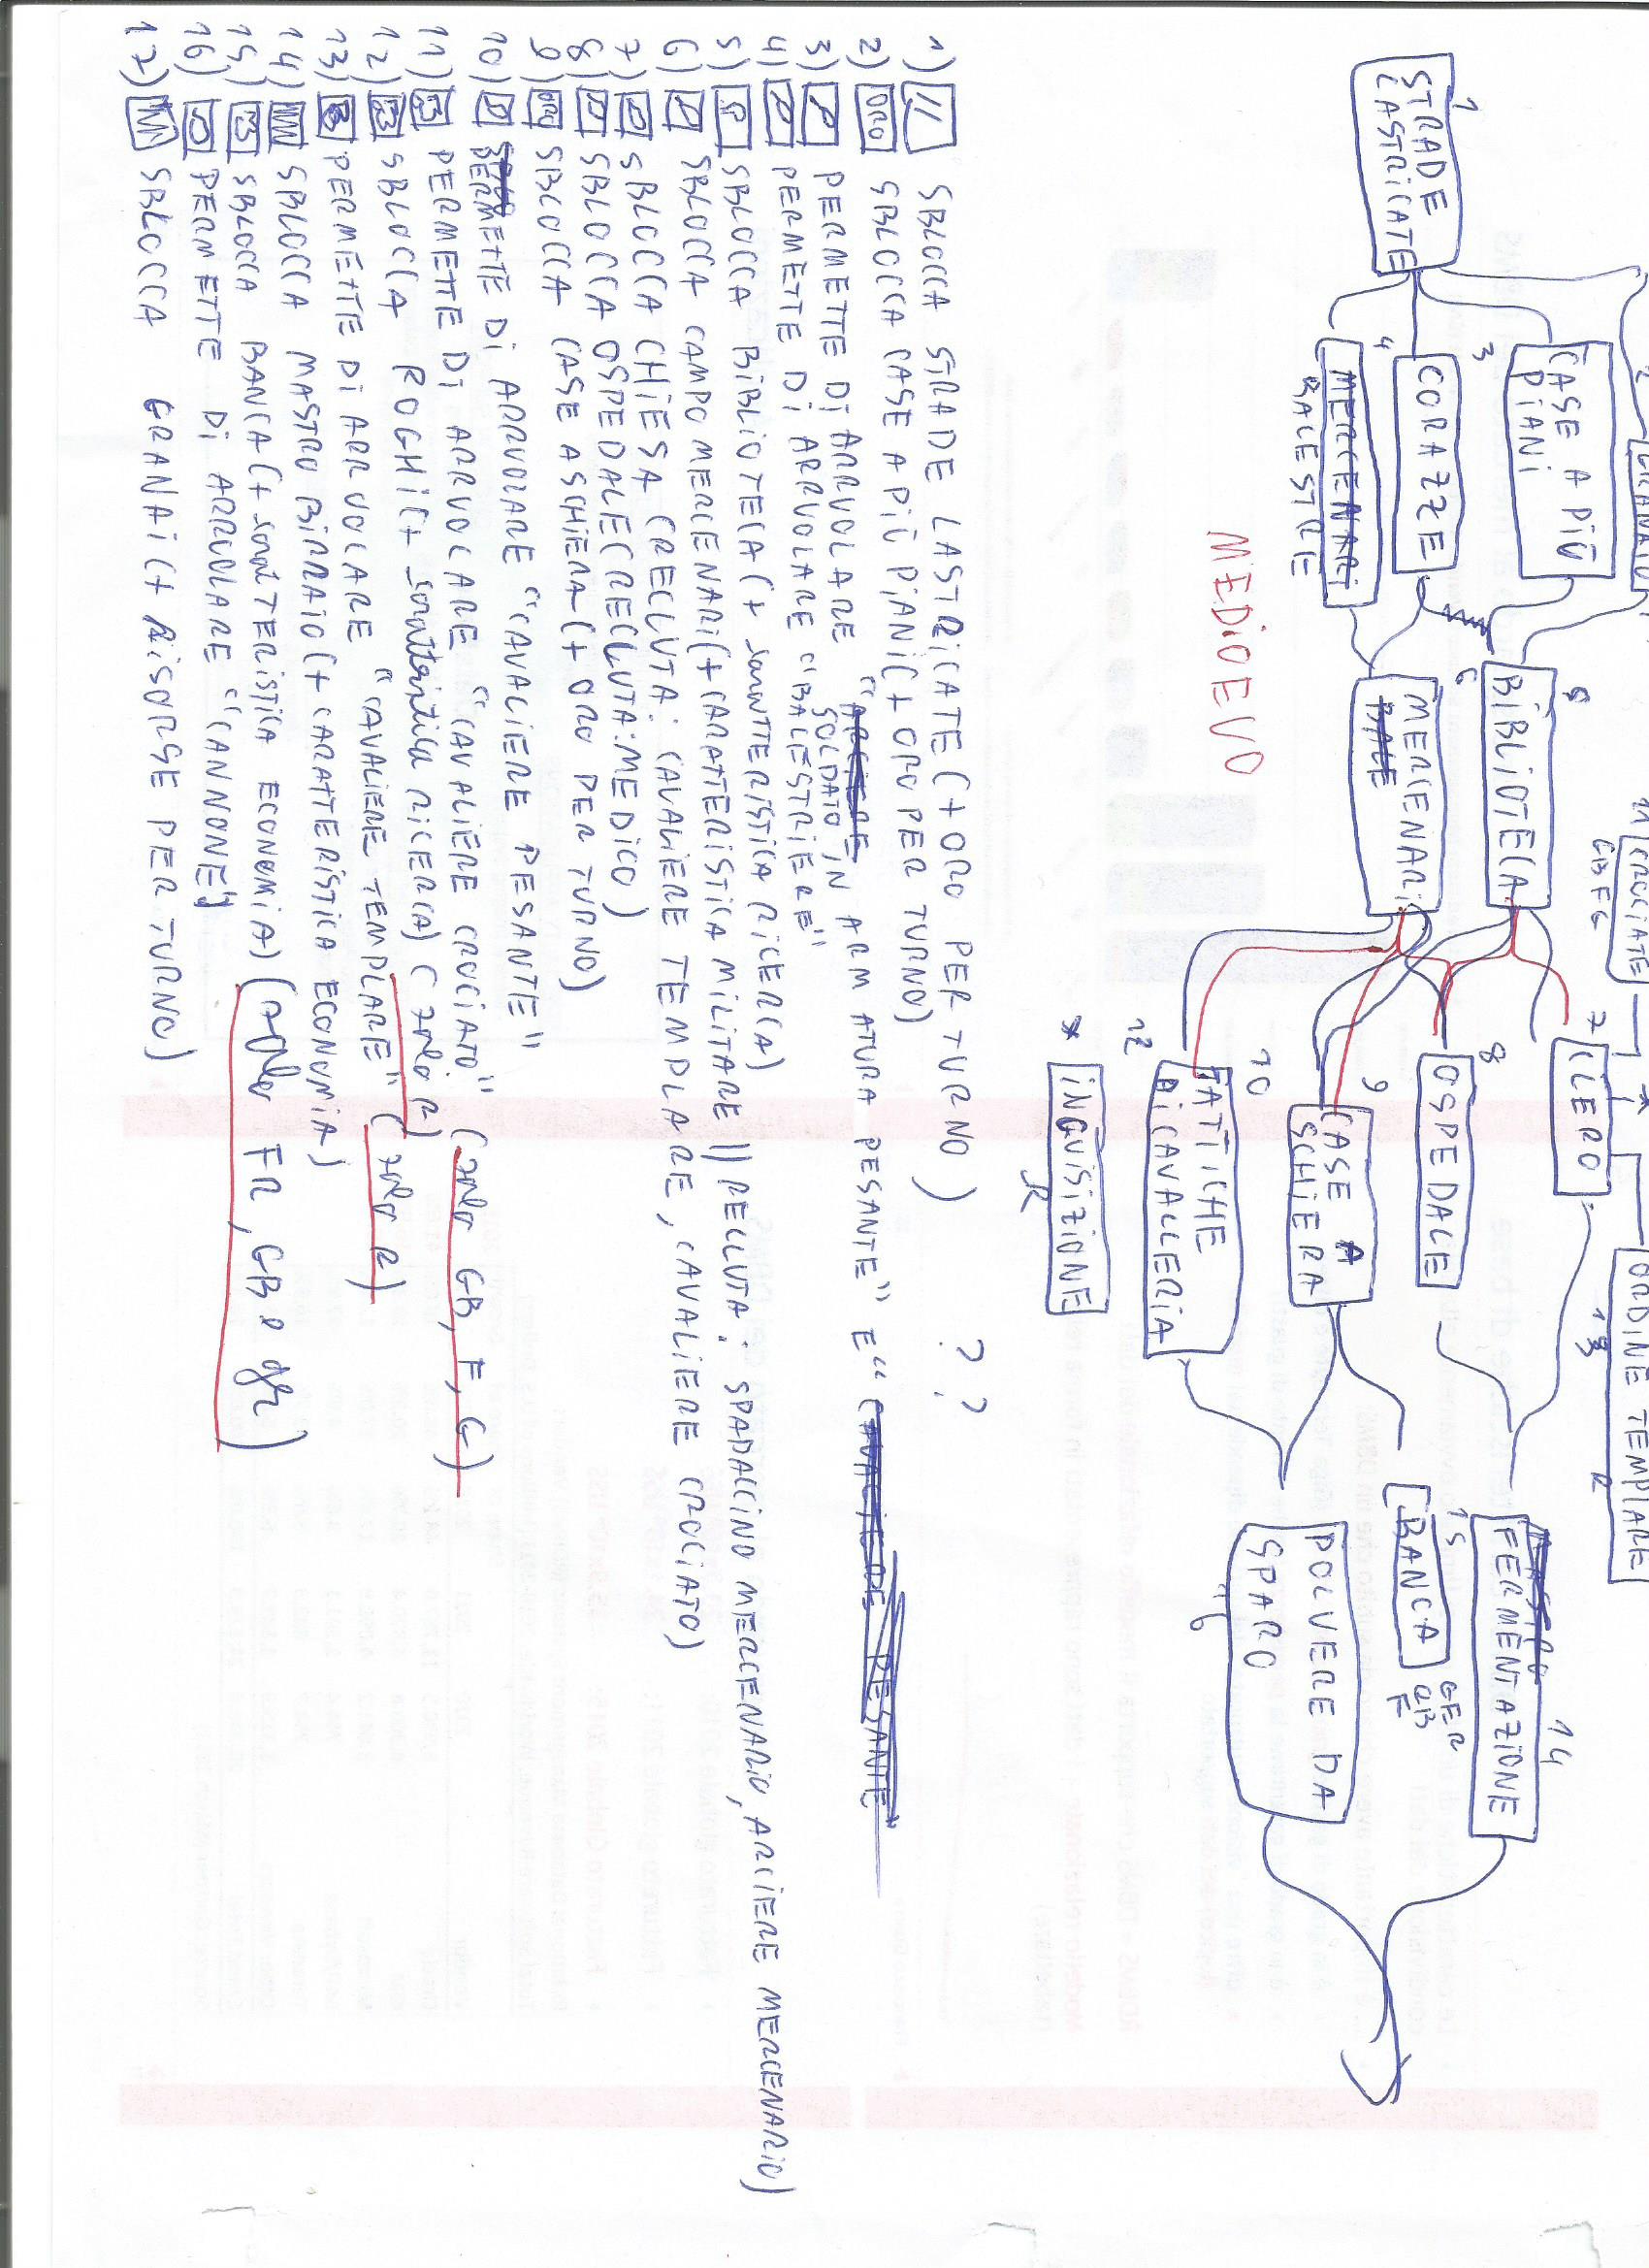 2 GRANAIO
11 CROCIATE
GB F G
ORDINE TEMPLARE
13 R
CASE A PIÙ
PIANI
7
CLERO
5
BIBLIOTECA
14
FERMENTAZIONE
3
CORAZZE
8
OSPEDALE
1
STRADE
LASTRICATE
6
MERCENARI
BALE
15
BANCA
GER
GB
F
4
MERCENARI
BALESTRE
9
CASE A
SCHIERA
POLVERE DA
SPARO
16
MEDIOEVO
10
TATTICHE
DI CAVALLERIA
12
* INQUISIZIONE
R
? ?
1) // SBLOCCA STRADE LASTRICATE (+ ORO PER TURNO)
2) ORO SBLOCCA CASE A PIÙ PIANI (+ ORO PER TURNO)
3) PERMETTE DI ARRUOLARE "ARCIERE SOLDATO IN ARMATURA PESANTE" E "CAVALIERE PESANTE"
4) PERMETTE DI ARRUOLARE "BALESTRIERE"
5) SBLOCCA BIBLIOTECA (+ caratTERISTICA RICERCA)
6) SBLOCCA CAMPO MERCENARI (+ CARATTERISTICA MILITARE || RECLUTA: SPADACCINO MERCENARIO, ARCIERE MERCENARIO)
7) SBLOCCA CHIESA (RECLUTA: CAVALIERE TEMPLARE, CAVALIERE CROCIATO)
8) SBLOCCA OSPEDALE (RECLUTA: MEDICO)
9) ORO SBLOCCA CASE A SCHIERA (+ ORO PER TURNO)
10) PERMETTE DI ARRUOLARE "CAVALIERE PESANTE"
11) PERMETTE DI ARRUOLARE "CAVALIERE CROCIATO" (solo GB, F, G)
12) SBLOCCA ROGHI (+ caratteristica RICERCA) (solo R)
13) PERMETTE DI ARRUOLARE "CAVALIERE TEMPLARE" (solo R)
14) SBLOCCA MASTRO BIRRAIO (+ CARATTERISTICA ECONOMIA)
15) SBLOCCA BANCA (+ caratTERISTICA ECONOMIA) (solo FR, GB e gr)
16) PERMETTE DI ARRUOLARE "CANNONE"
17) SBLOCCA GRANAI (+ RISORSE PER TURNO)